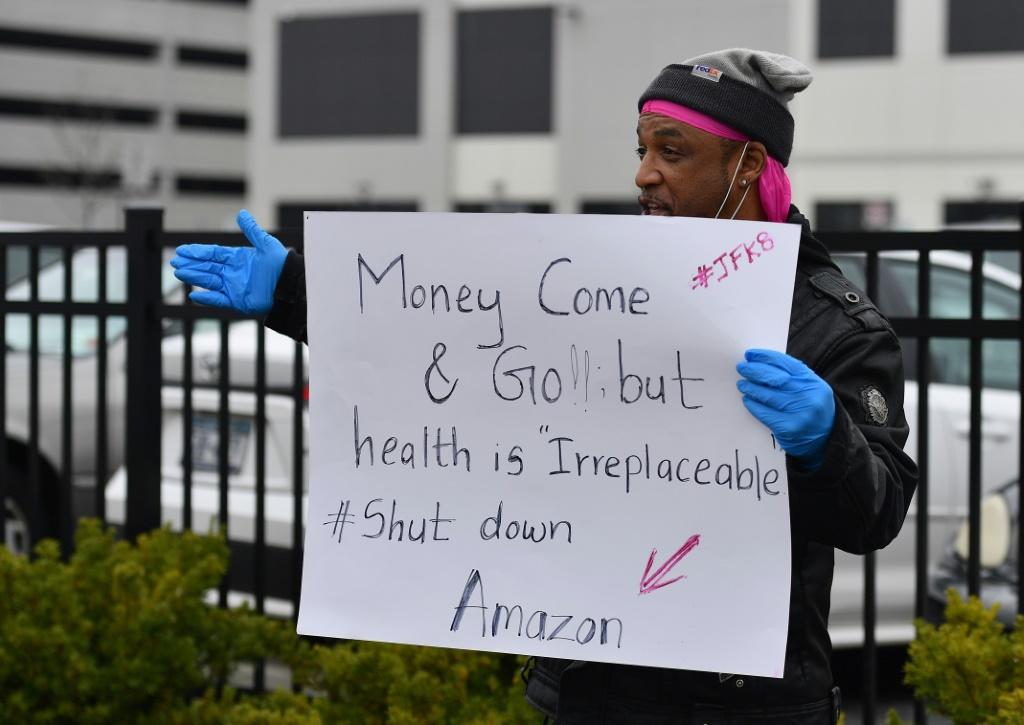 FedEx
#JFK8
Money Come
& Go!!; but
health is "Irreplaceable"
#Shut down
Amazon